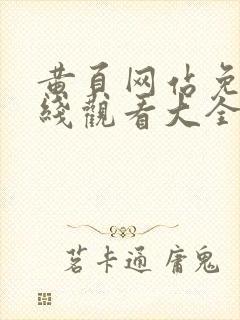 黄頁网佔免
綫觀看大全
茗卡通 庸鬼